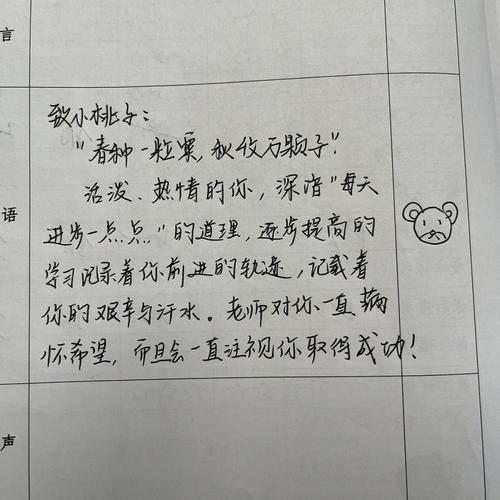 言
致小桃子：
"春种一粒粟，秋收万颗子"。
语
活泼、热情的你，深谙"每天
进步一点点"的道理，逐步提高的
学习记录着你前进的轨迹，记载着
你的艰辛与汗水。老师对你一直满
怀希望，而且会一直注视你取得成功！
声